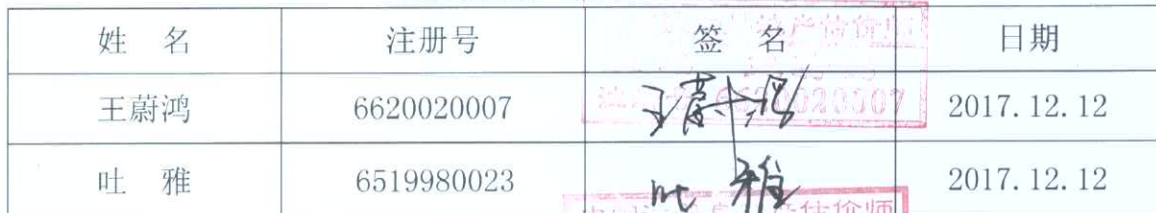 姓 名 注册号 签 名 日期
王蔚鸿 6620020007 王蔚鸿 2017.12.12
吐 雅 6519980023 吐雅 2017.12.12